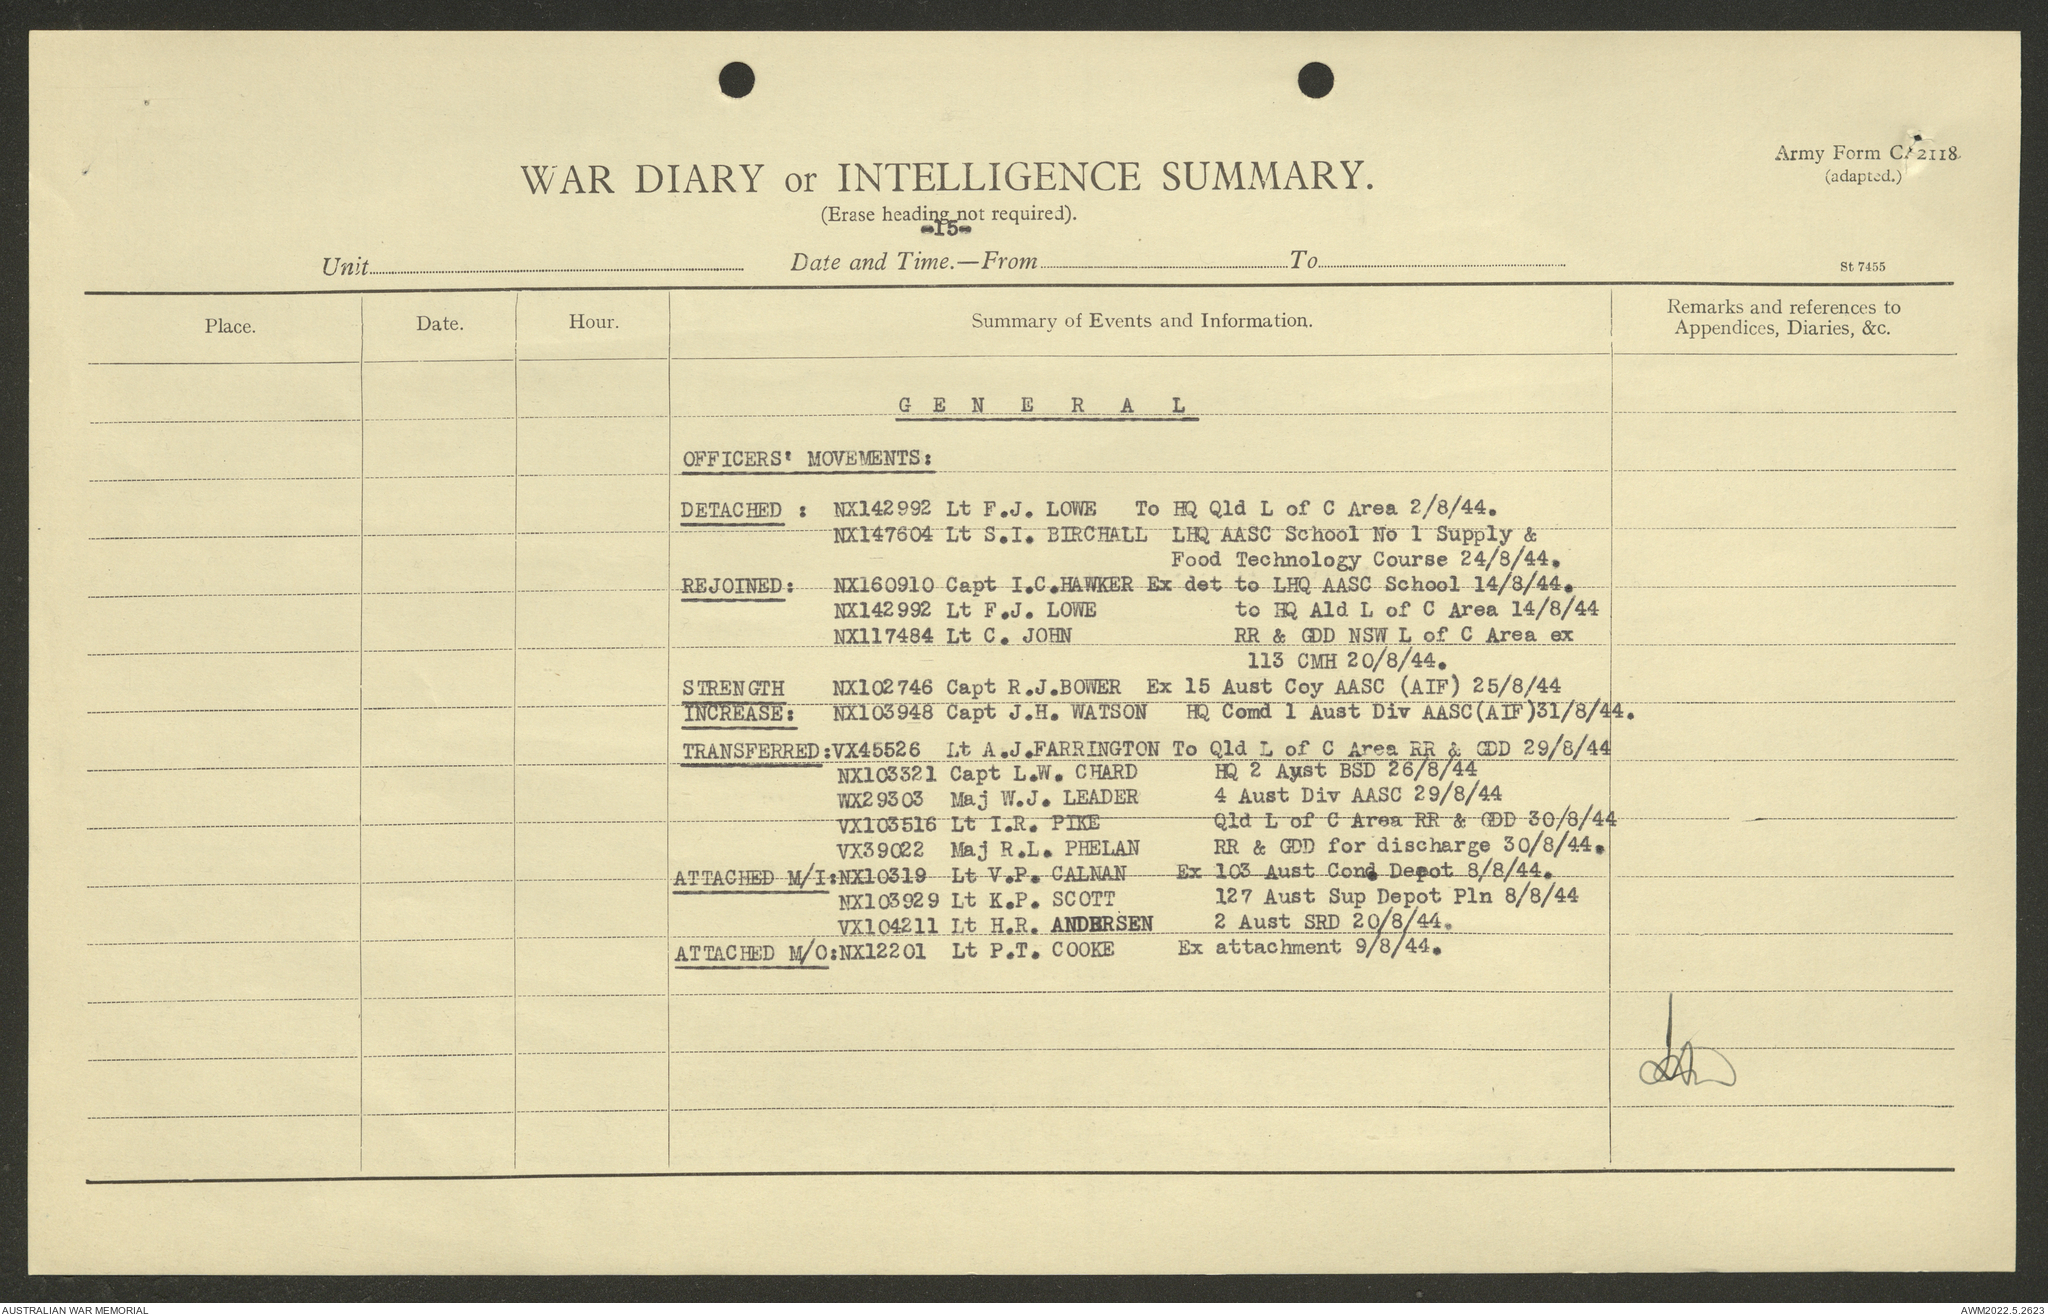 Army Form C.2118.
(adapted.)
WAR DIARY or INTELLIGENCE SUMMARY.
(Erase heading not required).
-15-
Unit Date and Time.—From To
St 7455
Place. Date. Hour. Summary of Events and Information. Remarks and references to
Appendices, Diaries, &c.
G E N E R A L
OFFICERS' MOVEMENTS:
DETACHED : NX142992 Lt F.J. LOWE To HQ Qld L of C Area 2/8/44.
NX147604 Lt S.I. BIRCHALL LHQ AASC School No 1 Supply &
Food Technology Course 24/8/44.
REJOINED: NX160910 Capt I.C.HAWKER Ex det to LHQ AASC School 14/8/44.
NX142992 Lt F.J. LOWE to HQ Ald L of C Area 14/8/44
NX117484 Lt C. JOHN RR & GDD NSW L of C Area ex
113 CMH 20/8/44.
STRENGTH NX102746 Capt R.J.BOWER Ex 15 Aust Coy AASC (AIF) 25/8/44
INCREASE: NX103948 Capt J.H. WATSON HQ Comd 1 Aust Div AASC(AIF)31/8/44.
TRANSFERRED:VX45526 Lt A.J.FARRINGTON To Qld L of C Area RR & GDD 29/8/44
NX103321 Capt L.W. CHARD HQ 2 Ayst BSD 26/8/44
WX29303 Maj W.J. LEADER 4 Aust Div AASC 29/8/44
VX103516 Lt I.R. PIKE Qld L of C Area RR & GDD 30/8/44
VX39022 Maj R.L. PHELAN RR & GDD for discharge 30/8/44.
ATTACHED M/I:NX10319 Lt V.P. CALNAN Ex 103 Aust Cond Depot 8/8/44.
NX103929 Lt K.P. SCOTT 127 Aust Sup Depot Pln 8/8/44
VX104211 Lt H.R. ANDERSEN 2 Aust SRD 20/8/44.
ATTACHED M/O:NX12201 Lt P.T. COOKE Ex attachment 9/8/44.
AUSTRALIAN WAR MEMORIAL AWM2022.5.2623